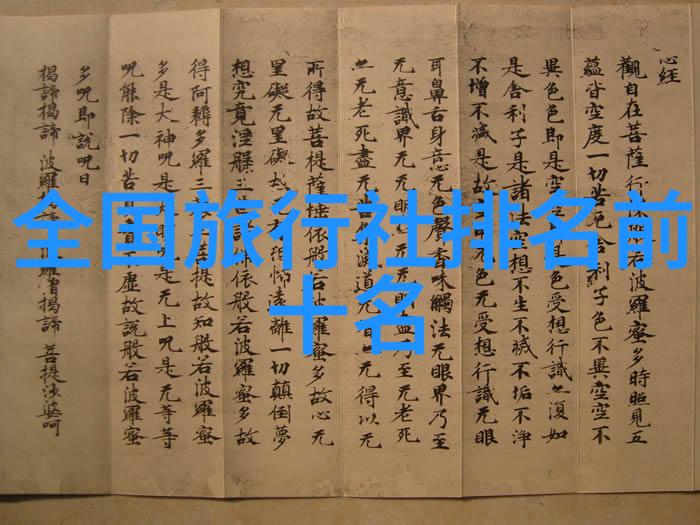 全国旅行社排名前
十名
心經
觀自在菩薩行若波羅蜜多時照見五
蘊皆空度一切苦厄舍利子色不異空空不
異色色即是空空是色受想行識亦復如
是舍利子是諸法空想不生不滅不垢不淨
不增不減是故无色无受想行識无眼
耳鼻舌身意无色聲香味觸法无眼界乃至
无意識界无无明盡乃至无老死
亦无老死盡无苦道无得以无
所得故菩提薩埵依般若波羅蜜多故心无
罣礙无罣礙故无怖遠離一切顛倒夢
想究竟涅槃三世依般若波羅蜜多故
得阿耨多羅三菩提故知般若波羅蜜
多是大神呪是大呪是无上呪是无等等
呪能除一切苦不虛故說般若波羅蜜
多呪即說呪曰
揭諦揭諦 波羅揭 羅僧揭諦 菩提莎婆呵